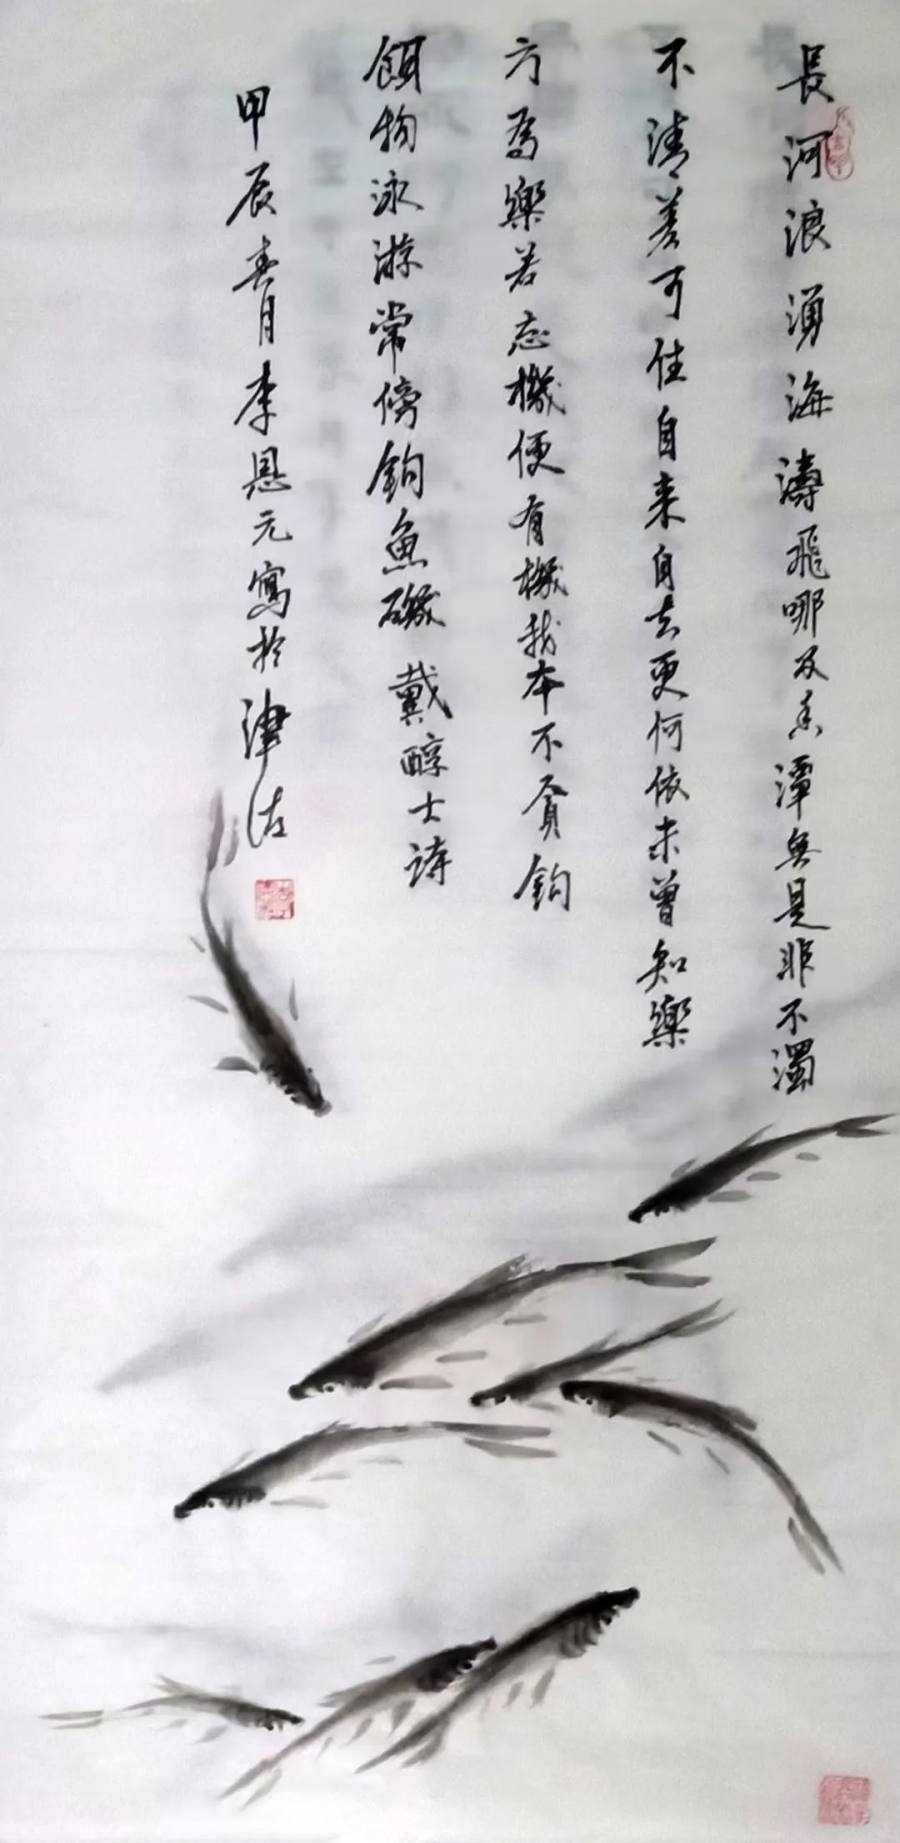 長河浪湧海濤飛哪及香潭無是非不濁
不清差可住自来自去更何依未曾知樂
方為樂若忘機便有機我本不貪鉤
餌物泳游常傍釣魚磯 戴醇士詩
甲辰春月李恩元寫於津沽